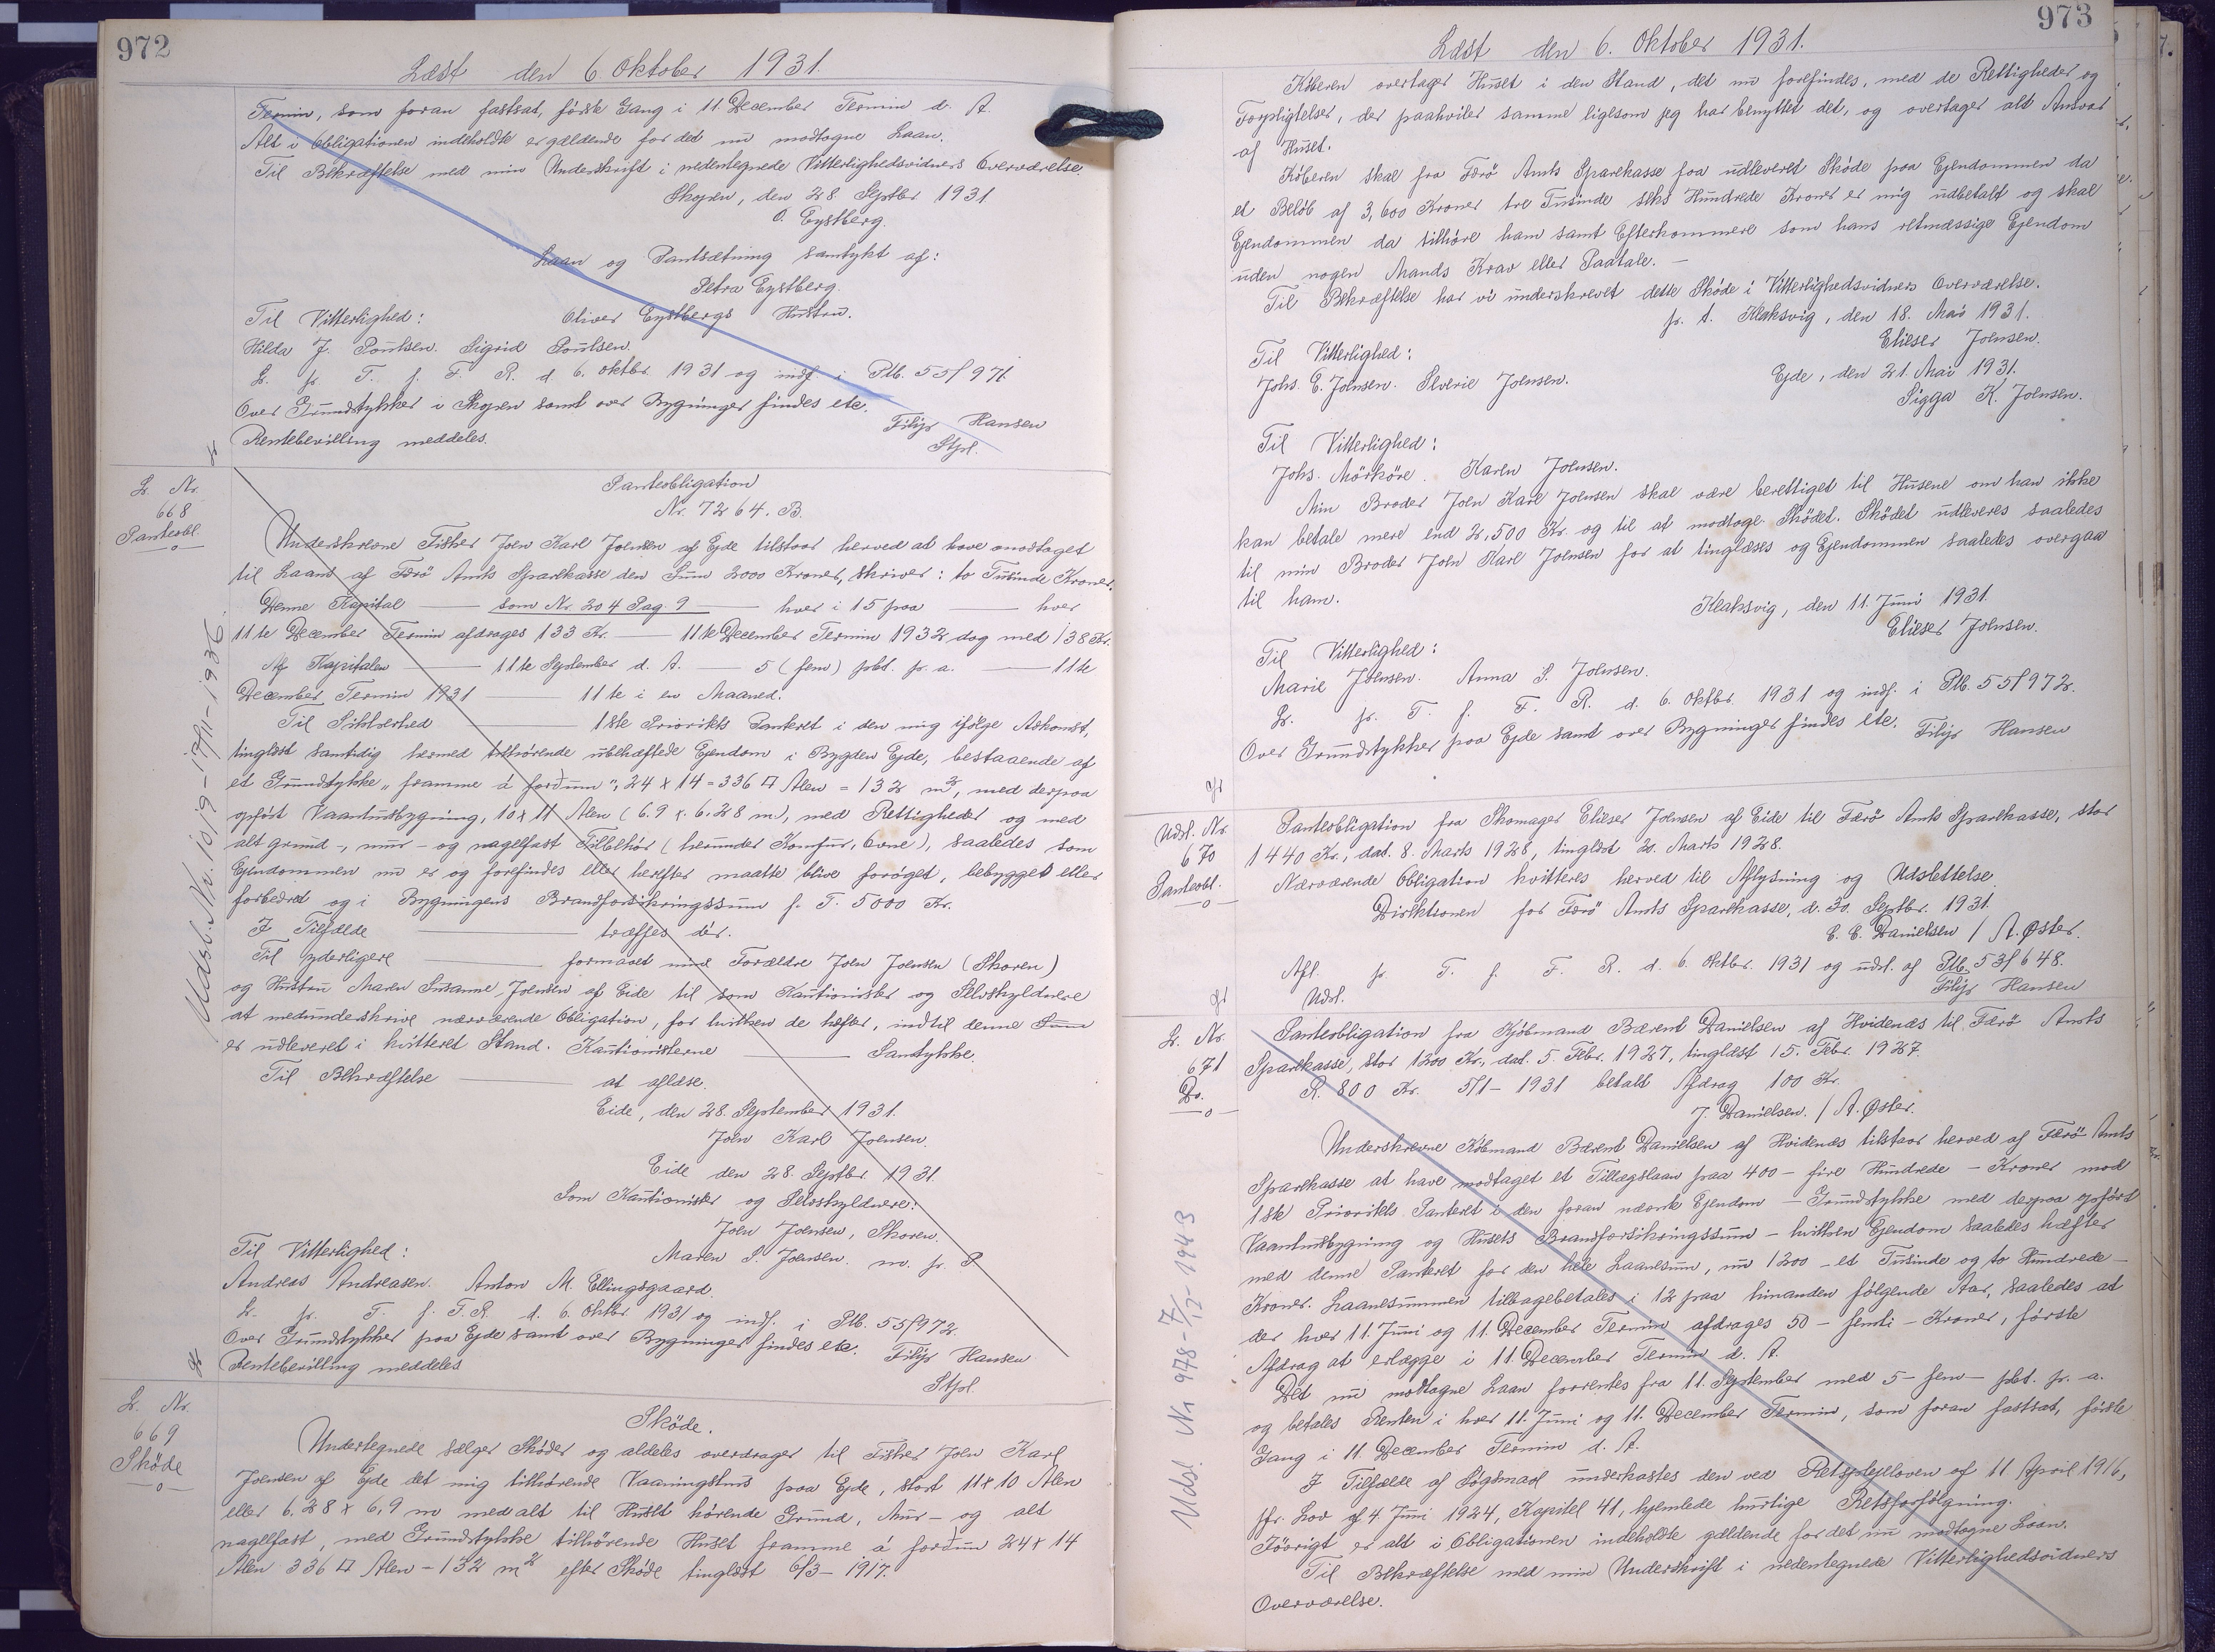 972
Læst den 6 Oktober 1931.
Termin, som foran fastsat, første Gang i 11. December Termin d. A.
Alt i Obligationen indeholdte er gældende for det nu modtagne Laan.
Til Bekræftelse med min Underskrift i nedentegnede Vitterlighedsvidners Overværelse.
Skopen, den 28. Septbr 1931
O. Eystberg.
Laan og Pantsætning samtykt af:
Petra Eystberg.
Til Vitterlighed: Oliver Eystbergs Hustru.
Hilda J. Poulsen. Sigrid Poulsen.
L. pr. T. f. F. R. d. 6. Oktbr. 1931 og indf. i Ptb. 55/971.
Over Grundstykker i Skopen samt over Bygninger findes etc.
Rentebevilling meddeles.
Filip Hansen
Stpl.
L. Nr.
668
Panteobl.
Udsl. Nr. 1019-17/11-1936.
Panteobligation
Nr. 7264. B.
Underskrevne Fisker Joen Karl Joensen af Ejde tilstaar herved at have modtaget
til Laans af Færö Amts Sparekasse den Sum 2000 Kroner, skriver: to Tusinde Kroner.
Denne Kapital — som Nr. 204 Pag. 9 — hver i 15 paa — hver
11te December Termin afdrages 133 Kr. — 11te December Termin 1932 dog med 138 Kr.
Af Kapitalen — 11te September d. A. — 5 (fem) pbt. p. a. — 11te
December Termin 1931 — 11te i en Maaned.
Til Sikkerhed — 1ste Prioritets Panteret i den mig ifølge Adkomst,
tinglæst samtidig hermed tilhørende ubehæftede Ejendom i Bygden Ejde, bestaaende af
et Grundstykke „framme á forðum“, 24 x 14 = 336 □ Alen = 132 m², med derpaa
opført Vaaningsbygning, 10 x 11 Alen (6.9 x 6.28 m), med Rettigheder og med
alt grund-, mur- og nagelfast Tilbehör (herunder Komfur, Ovne), saaledes som
Ejendommen nu er og forefindes eller herefter maatte blive forøget, bebygget eller
forbedret og i Bygningens Brandforsikringssum f. T. 5000 Kr.
I Tilfælde — træffes dér.
Til yderligere — formaaet mine Forældre Joen Joensen (Skoren)
og Hustru Maren Susanne Joensen af Eide til som Kautionister og Selvskyldnere
at medunderskrive nærværende Obligation, for hvilken de hæfter, indtil denne
er udleveret i kvitteret Stand. Kautionisterne — Samtykke.
Til Bekræftelse — at aflæse.
Eide, den 28. September 1931.
Joen Karl Joensen.
Eide den 28. Septbr. 1931.
Som Kautionister og Selvskyldnere:
Joen Joensen, Skoren.
Maren S. Joensen. m. p. P
Til Vitterlighed:
Andreas Andreasen. Anton M. Ellingsgaard.
L. pr. T. f. F. R. d. 6. Oktbr. 1931 og indf. i Ptb. 55/972.
Over Grundstykker paa Ejde samt over Bygninger findes etc.
Rentebevilling meddeles
Filip Hansen
Stpl.
L. Nr.
669
Sköde
Sköde.
Undertegnede sælger Sköder og aldeles overdrager til Fisker Joen Karl
Joensen af Ejde det mig tilhörende Vaaningshus paa Ejde, stort 11 x 10 Alen
eller 6,28 x 6,9 m med alt til Huset hörende Grund, Mur- og alt
nagelfast, med Grundstykke tilhörende Huset framme á forðum 24 x 14
Alen 336 □ Alen - 132 m² efter Sköde tinglæst 6/3 - 1917.
973
Læst den 6. Oktober 1931.
Köberen overtager Huset i den Stand, det nu forefindes, med de Rettigheder og
Forpligtelser, der paahviler samme ligesom jeg har benyttet det, og overtager alt Ansvar
af Huset.
Köberen skal fra Færö Amts Sparekasse faa udleveret Sköde paa Ejendommen da
et Belöb af 3,600 Kroner tre Tusinde seks Hundrede Kroner er mig udbetalt og skal
Ejendommen da tilhöre ham samt Efterkommere som hans retmæssige Ejendom
uden nogen Mands Krav eller Paatale. —
Til Bekræftelse har vi underskrevet dette Sköde i Vitterlighedsvidners Overværelse.
p. t. Klaksvig, den 18. Mai 1931.
Elieser Joensen.
Til Vitterlighed:
Johs. E. Joensen. Severie Joensen.
Ejde, den 21. Mai 1931.
Sigga K. Joensen.
Til Vitterlighed:
Johs. Mörköre. Karen Joensen.
Min Broder Joen Karl Joensen skal være berettiget til Husene om han ikke
kan betale mere end 2,500 Kr. og til at modtage Sködet. Sködet udleveres saaledes
til min Broder Joen Karl Joensen for at tinglæses og Ejendommen saaledes overgaa
til ham.
Klaksvig, den 11. Juni 1931.
Elieser Joensen.
Til Vitterlighed:
Marie Joensen. Anna S. Joensen.
L. pr. T. f. F. R. d. 6. Oktbr. 1931 og indf. i Ptb. 55/972.
Over Grundstykker paa Ejde samt over Bygninger findes etc. Filip Hansen
Udsl. Nr.
670
Panteobl.
Panteobligation fra Skomager Elieser Joensen af Eide til Færö Amts Sparekasse, stor
1440 Kr., dat. 8. Marts 1928, tinglæst 20. Marts 1928.
Nærværende Obligation kvitteres herved til Aflysning og Udslettelse
Direktionen for Færö Amts Sparekasse, d. 30. Septbr. 1931.
C. C. Danielsen / A. Øster.
Afl. pr. T. f. F. R. d. 6. Oktbr. 1931 og udsl. af Ptb. 53/648.
Udsl.
Filip Hansen
L. Nr.
671
Do.
Udsl. Nr 978-7/12-1943
Panteobligation fra Kjöbmand Bærent Danielsen af Hvidenæs til Færö Amts
Sparekasse, stor 1200 Kr., dat. 5. Febr. 1927, tinglæst 15. Febr. 1927.
R. 800 Kr. 5/1 - 1931 betalt Afdrag 100 Kr.
J. Danielsen. / A. Øster.
Underskrevne Købmand Bærent Danielsen af Hvidenæs tilstaar herved af Færö Amts
Sparekasse at have modtaget et Tillægslaan paa 400 - fire Hundrede - Kroner mod
1ste Prioritets Panteret i den foran nævnte Ejendom - Grundstykke med derpaa opført
Vaaningsbygning og Husets Brandforsikringssum - hvilken Ejendom saaledes hæfter
med denne Panteret for den hele Laanesum, nu 1200 - et Tusinde og to Hundrede -
Kroner. Laanesummen tilbagebetales i 12 paa hinanden fölgende Aar, saaledes at
der hver 11. Juni og 11. December Termin afdrages 50 - femti - Kroner, förste
Afdrag at erlægge i 11. December Termin d. A.
Det nu modtagne Laan forrentes fra 11. September med 5 - fem - pbt. p. a.
og betales Renten i hver 11. Juni og 11. December Termin, som foran fastsat, förste
Gang i 11. December Termin d. A.
I Tilfælde af Søgsmaal underkastes den ved Retsplejeloven af 11 April 1916,
jfr. Lov af 4. Juni 1924, Kapitel 41, hjemlede hurtige Retsforfölgning.
Iövrigt er alt i Obligationen indeholdte gældende for det nu modtagne Laan.
Til Bekræftelse med min Underskrift i nedentegnede Vitterlighedsvidners
Overværelse.